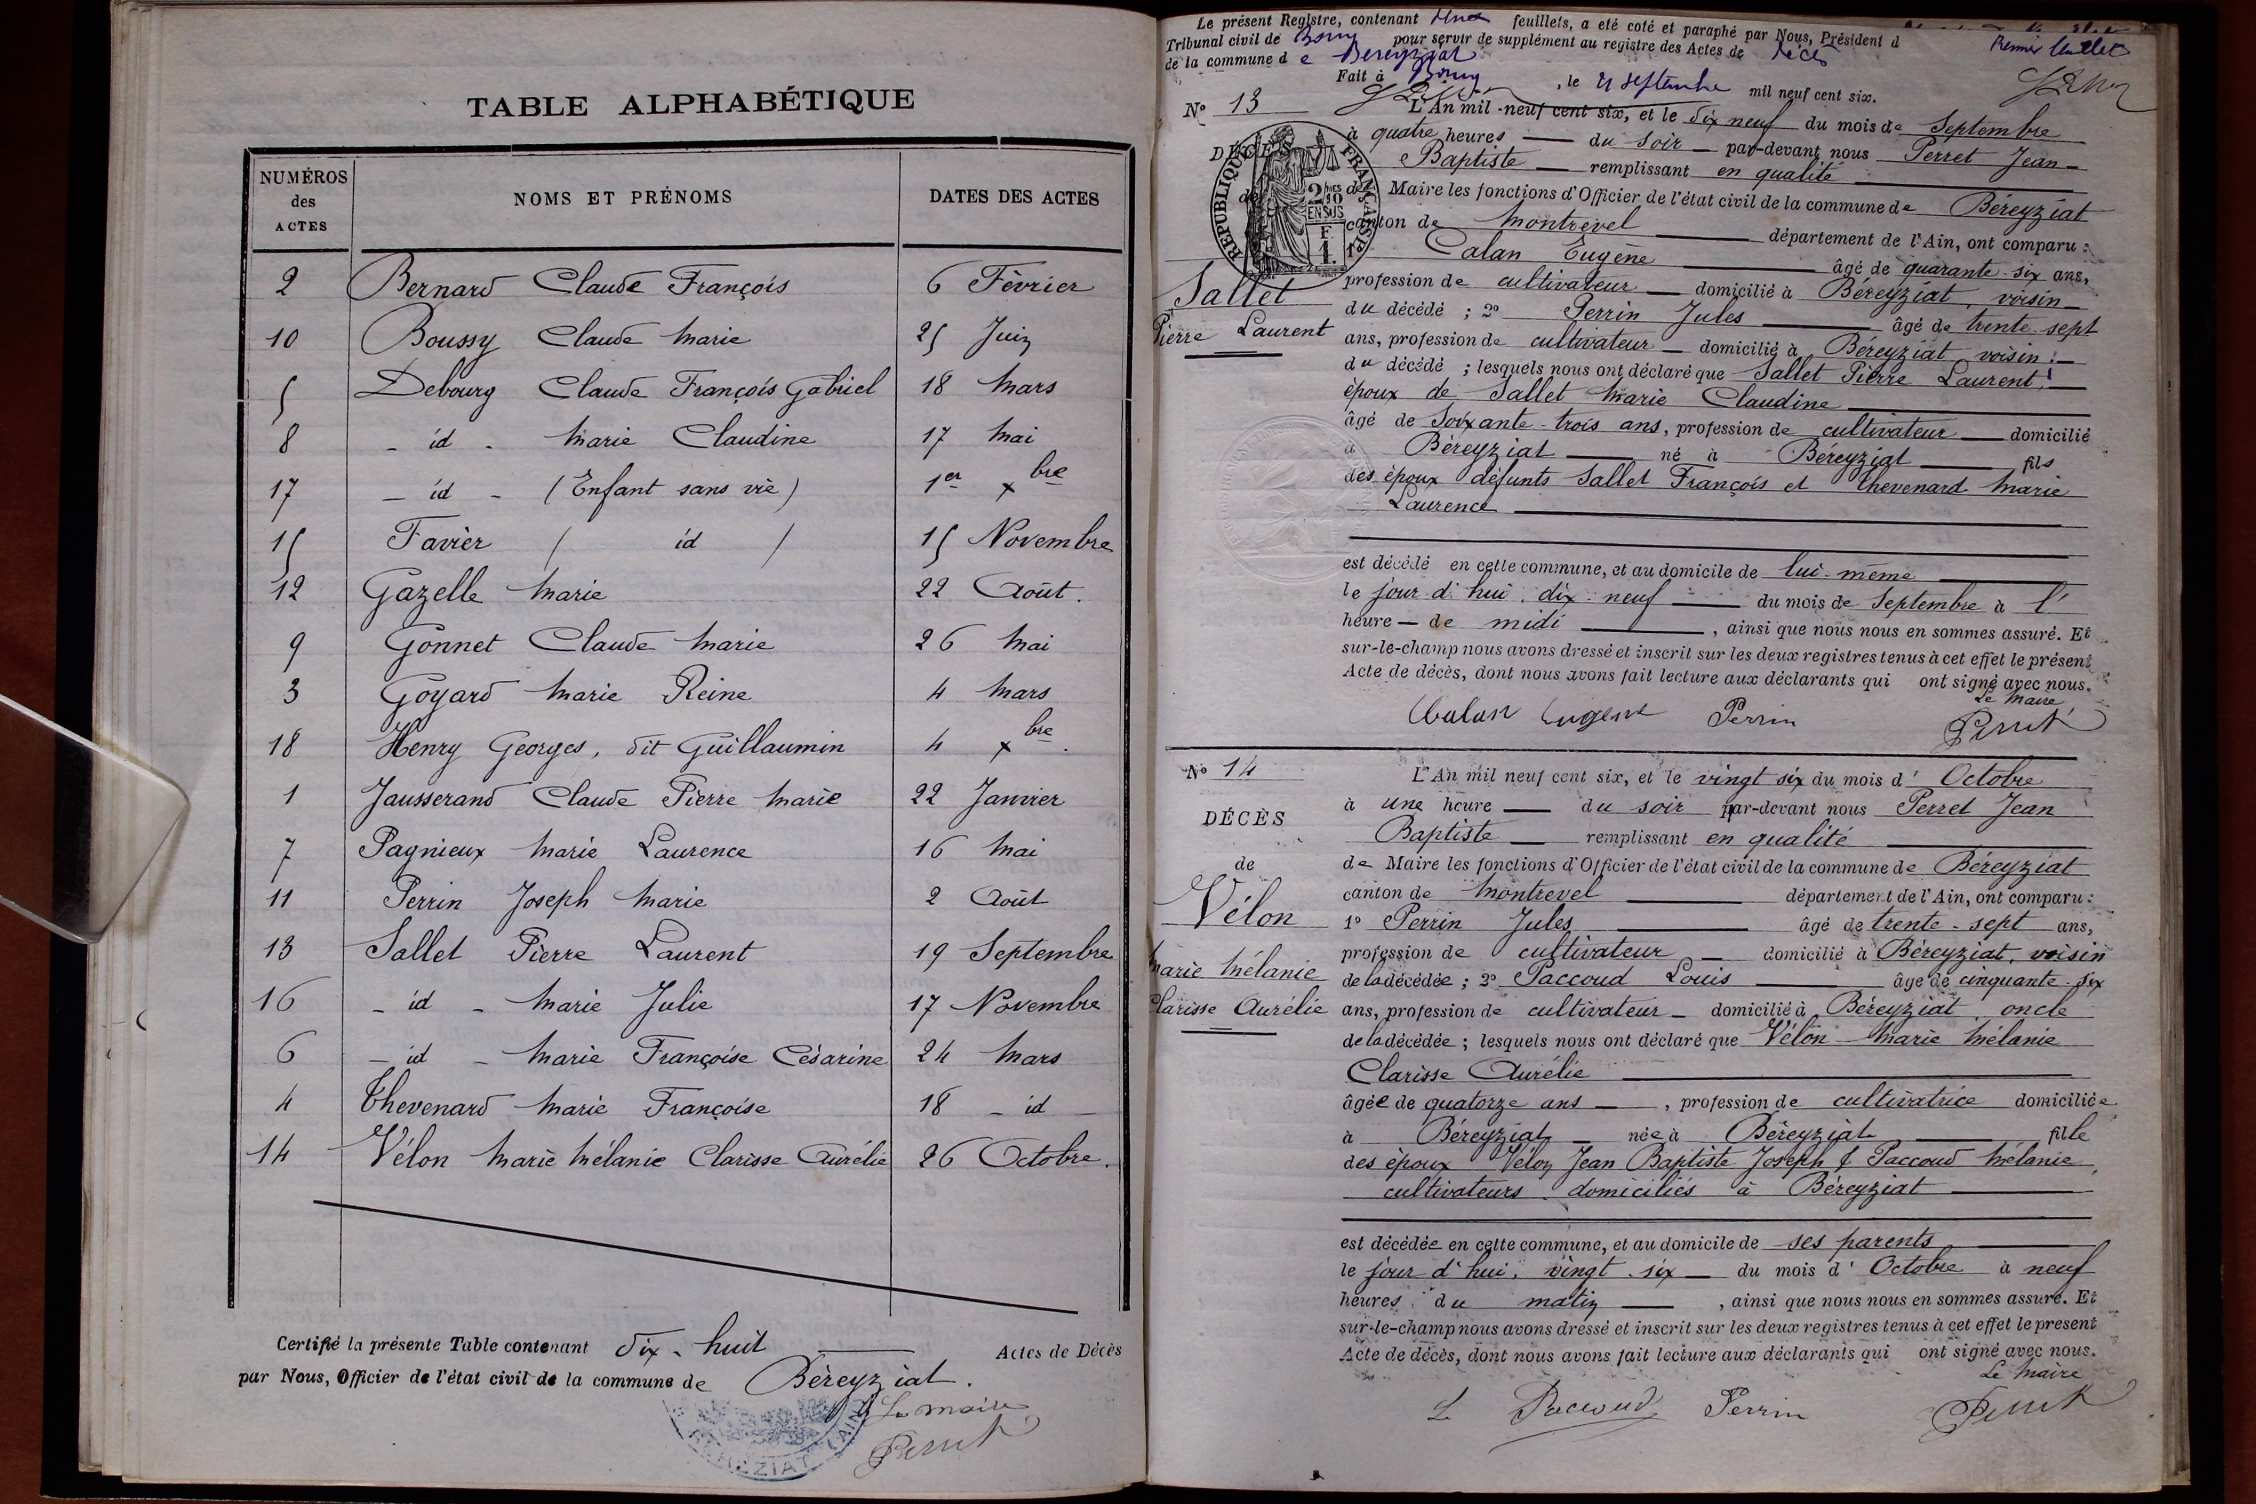 TABLE ALPHABÉTIQUE
NUMÉROS des ACTES
NOMS ET PRÉNOMS
DATES DES ACTES
2 Bernard Claude François 6 Février
10 Boussy Claude Marie 25 Juin
5 Debourg Claude François Gabriel 18 Mars
8 - id - Marie Claudine 17 Mai
17 - id - (Enfant sans vie) 1er xbre
15 Favier ( id ) 15 Novembre
12 Gazelle Marie 22 Août.
9 Gonnet Claude Marie 26 Mai
3 Goyard Marie Reine 4 Mars
18 Henry Georges, dit Guillaumin 4 xbre.
1 Jausserand Claude Pierre Marie 22 Janvier
7 Pagnieux Marie Laurence 16 Mai
11 Perrin Joseph Marie 2 Août
13 Sallet Pierre Laurent 19 Septembre
16 - id - Marie Julie 17 Novembre
6 - id - Marie Françoise Césarine 24 Mars
4 Thevenard Marie Françoise 18 - id -
14 Vélon Marie Mélanie Clarisse Aurélie 26 Octobre.
Certifié la présente Table contenant dix-huit Actes de Décès
par Nous, Officier de l'état civil de la commune de Béreyziat.
Le maire
Perret
Le présent Registre, contenant deux feuillets, a eté coté et paraphé par Nous, Président d
Tribunal civil de Bourg pour servir de supplément au registre des Actes de Décès
de la commune de Béreyziat
Fait à Bourg, le 21 septembre mil neuf cent six.
Premier feuillet
No 13
DÉCÈS
de
Sallet
Pierre Laurent
RÉPUBLIQUE FRANÇAISE
L'An mil neuf cent six, et le dix neuf du mois de Septembre
à quatre heures du soir par-devant nous Perret Jean-
Baptiste remplissant en qualité
de Maire les fonctions d'Officier de l'état civil de la commune de Béreyziat
canton de Montrevel département de l'Ain, ont comparu :
Calan Eugène âgé de quarante-six ans,
profession de cultivateur domicilié à Béreyziat, voisin
du décédé ; 2o Perrin Jules âgé de trente-sept
ans, profession de cultivateur domicilié à Béreyziat, voisin
du décédé ; lesquels nous ont déclaré que Sallet Pierre Laurent,
époux de Sallet Marie Claudine
âgé de Soixante-trois ans, profession de cultivateur domicilié
à Béreyziat né à Béreyziat fils
des époux défunts Sallet François et Thevenard Marie
Laurence
est décédé en cette commune, et au domicile de lui-même
le jour d'hui, dix-neuf du mois de Septembre à l'
heure de midi, ainsi que nous nous en sommes assuré. Et
sur-le-champ nous avons dressé et inscrit sur les deux registres tenus à cet effet le présent
Acte de décès, dont nous avons fait lecture aux déclarants qui ont signé avec nous.
Le Maire,
Calan Eugène Perrin Perret
No 14
DÉCÈS
de
Vélon
Marie Mélanie
Clarisse Aurélie
L'An mil neuf cent six, et le vingt six du mois d'Octobre
à une heure du soir par-devant nous Perret Jean
Baptiste remplissant en qualité
de Maire les fonctions d'Officier de l'état civil de la commune de Béreyziat
canton de Montrevel département de l'Ain, ont comparu :
1o Perrin Jules âgé de trente-sept ans,
profession de cultivateur domicilié à Béreyziat, voisin
de la décédée ; 2o Paccoud Louis âgé de cinquante-six
ans, profession de cultivateur domicilié à Béreyziat, oncle
de la décédée ; lesquels nous ont déclaré que Vélon Marie Mélanie
Clarisse Aurélie
âgée de quatorze ans, profession de cultivatrice domiciliée
à Béreyziat née à Béreyziat fille
des époux Vélon Jean Baptiste Joseph & Paccoud Mélanie,
cultivateurs domiciliés à Béreyziat
est décédée en cette commune, et au domicile de ses parents
le jour d'hui, vingt-six du mois d'Octobre à neuf
heures du matin, ainsi que nous nous en sommes assuré. Et
sur-le-champ nous avons dressé et inscrit sur les deux registres tenus à cet effet le présent
Acte de décès, dont nous avons fait lecture aux déclarants qui ont signé avec nous.
Le Maire
L Paccoud Perrin Perret